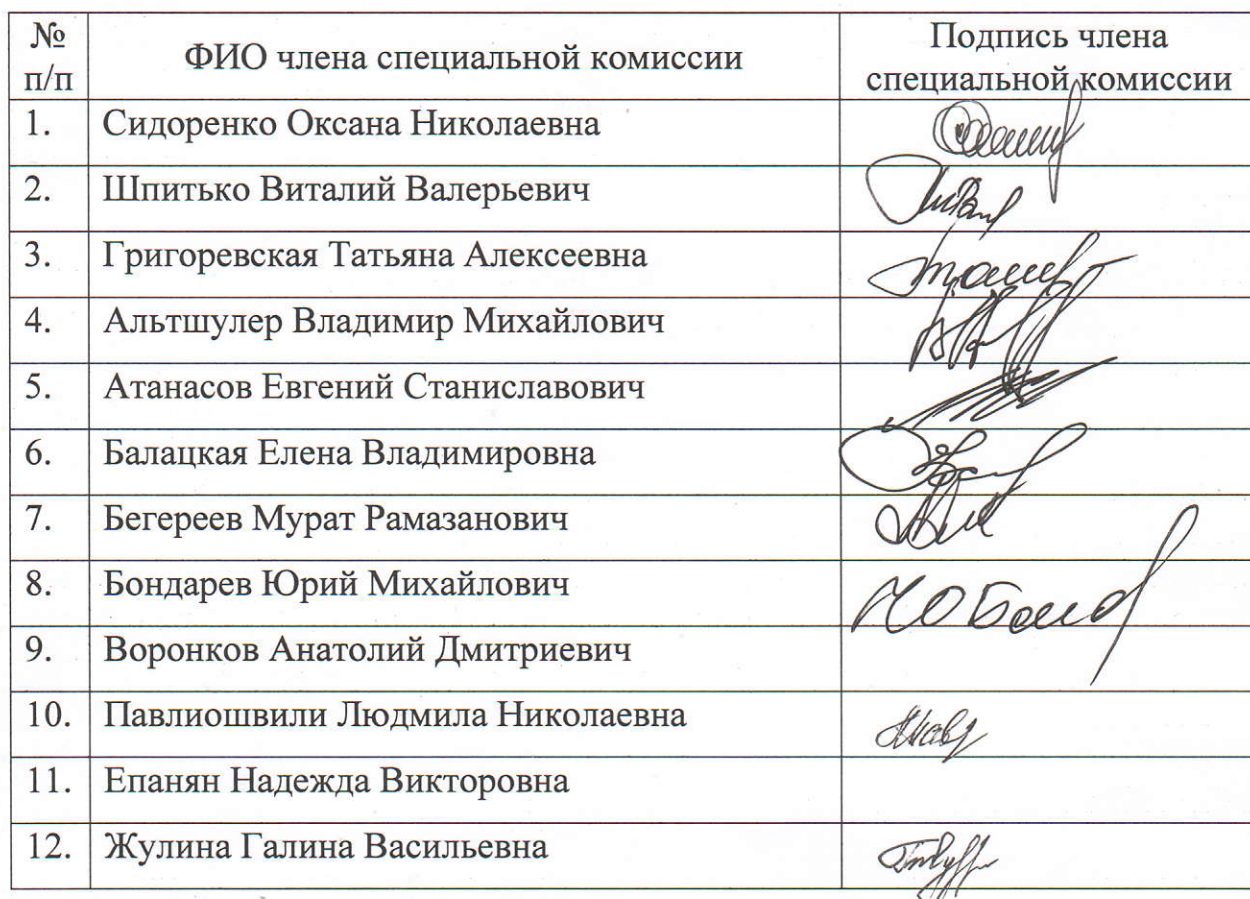 № п/п ФИО члена специальной комиссии Подпись члена специальной комиссии
1. Сидоренко Оксана Николаевна
2. Шпитько Виталий Валерьевич
3. Григоревская Татьяна Алексеевна
4. Альтшулер Владимир Михайлович
5. Атанасов Евгений Станиславович
6. Балацкая Елена Владимировна
7. Бегереев Мурат Рамазанович
8. Бондарев Юрий Михайлович
9. Воронков Анатолий Дмитриевич
10. Павлиошвили Людмила Николаевна
11. Епанян Надежда Викторовна
12. Жулина Галина Васильевна